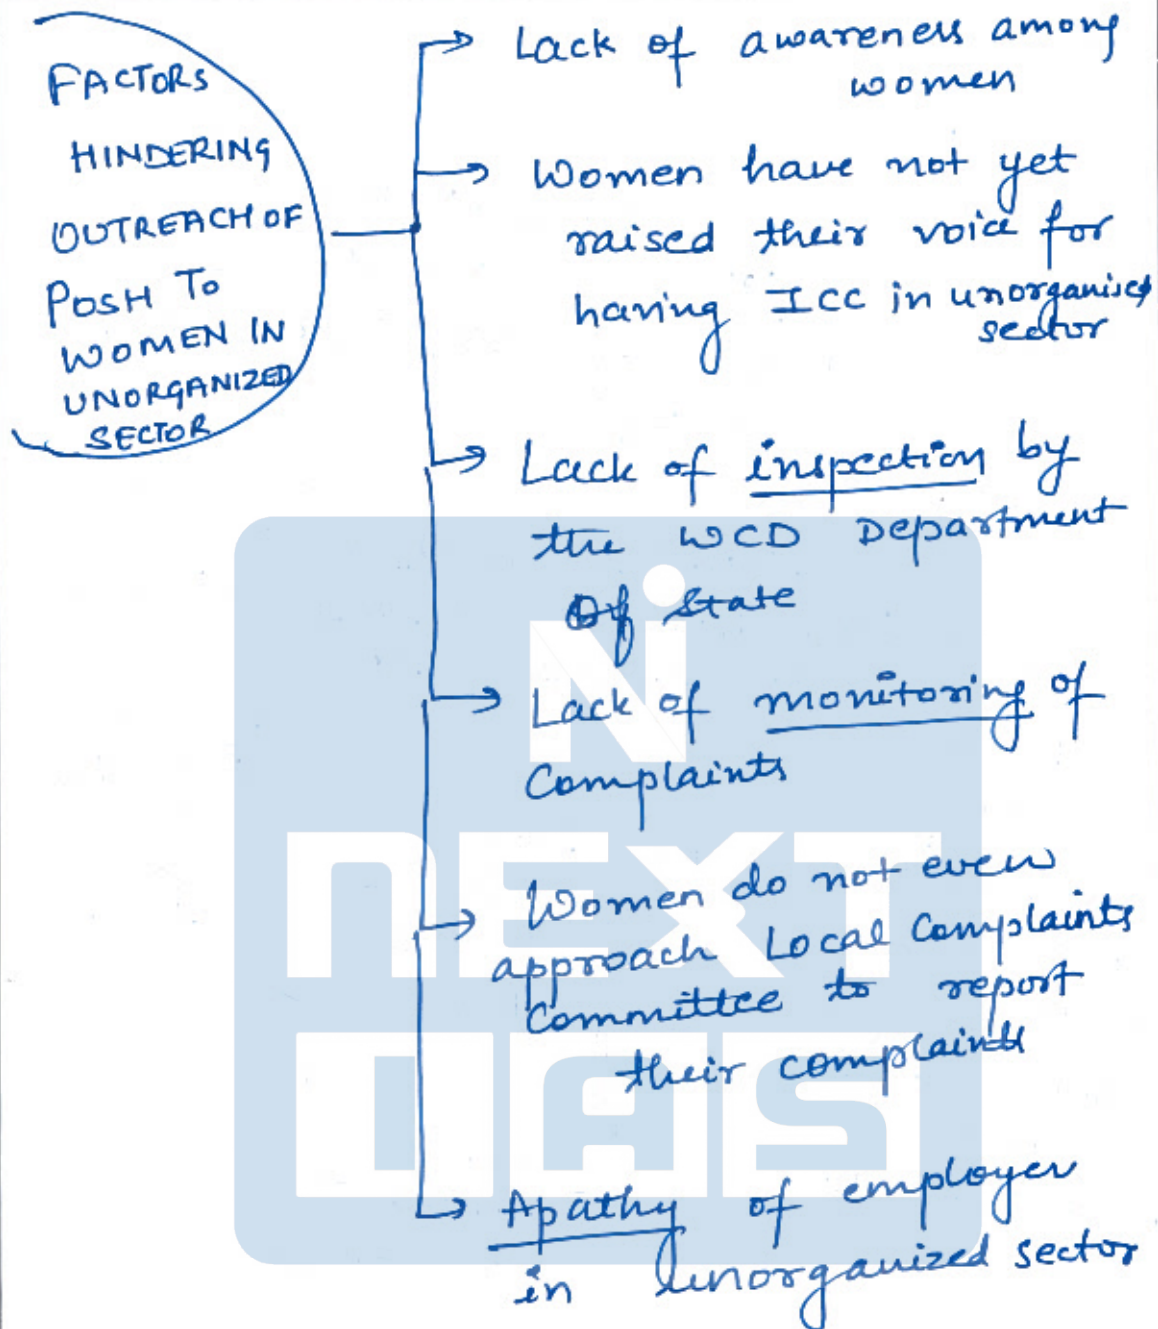 FACTORS
HINDERING
OUTREACH OF
POSH TO
WOMEN IN
UNORGANIZED
SECTOR
Lack of awareness among
women
Women have not yet
raised their voice for
having ICC in unorganised
sector
Lack of inspection by
the WCD Department
Of State
Lack of monitoring of
Complaints
Women do not even
approach Local Complaints
Committee to report
their complaints
Apathy of employer
in unorganized sector
Ni
NEXT
IAS